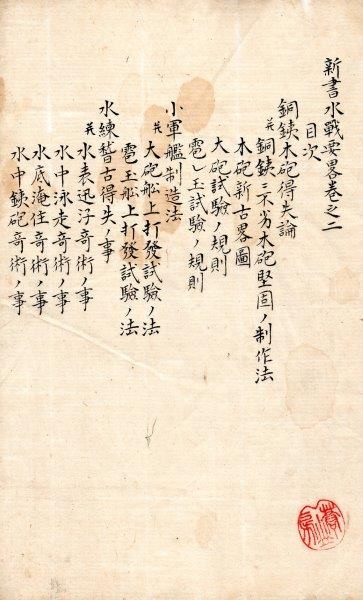 新書水戦要畧巻之二
目次
銅鉄木砲得失論
并 銅鉄ニ不劣木砲堅固ノ制作法
木砲新古畧圖
大砲試験ノ規則
雹玉試験ノ規則
小軍艦制造法
并 大砲舩上打發試験ノ法
雹玉舩上打發試験ノ法
水練督古得失ノ事
并 水表迅浮奇術ノ事
水中泳走奇術ノ事
水底淹住奇術ノ事
水中鉄砲奇術ノ事